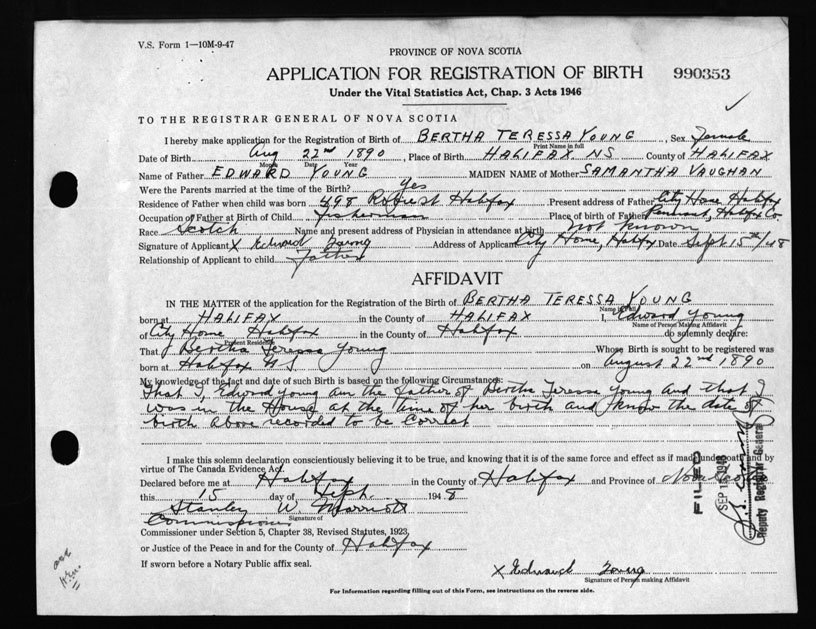 V.S. Form 1—10M-9-47
PROVINCE OF NOVA SCOTIA
APPLICATION FOR REGISTRATION OF BIRTH 990353
Under the Vital Statistics Act, Chap. 3 Acts 1946
TO THE REGISTRAR GENERAL OF NOVA SCOTIA
I hereby make application for the Registration of Birth of BERTHA TERESSA YOUNG, Sex Female
Print Name in full
Date of Birth Aug 22nd 1890, Place of Birth HALIFAX NS County of HALIFAX
Month Date Year
Name of Father EDWARD YOUNG MAIDEN NAME of Mother SAMANTHA VAUGHAN
Were the Parents married at the time of the Birth? yes
Residence of Father when child was born 498 Halifax Present address of Father City Home Halifax
Occupation of Father at Birth of Child fisherman Place of birth of Father Halifax Co.
Race Scotch Name and present address of Physician in attendance at birth not known
Signature of Applicant X Edward Young Address of Applicant City Home, Halifax Date Sept 15th/48
Relationship of Applicant to child Father
AFFIDAVIT
IN THE MATTER of the application for the Registration of the Birth of BERTHA TERESSA YOUNG
Name in Full
born at HALIFAX in the County of HALIFAX I, Edward Young
Name of Person Making Affidavit
of City Home Halifax in the County of Halifax do solemnly declare:
Present Residence
That Bertha Teressa Young Whose Birth is sought to be registered was
born at Halifax N S on August 22nd 1890
My knowledge of the fact and date of such Birth is based on the following Circumstances:
That I, Edward Young am the father of Bertha Teressa Young and that I
was in the House at the time of her birth and know the date of
birth above recorded to be correct
I make this solemn declaration conscientiously believing it to be true, and knowing that it is of the same force and effect as if made under oath and by
virtue of The Canada Evidence Act.
Declared before me at Halifax in the County of Halifax and Province of Nova Scotia
this 15 day of Sept. 1948
Stanley W. Marriott
Signature of
Commissioner
Commissioner under Section 5, Chapter 38, Revised Statutes, 1923,
or Justice of the Peace in and for the County of Halifax
If sworn before a Notary Public affix seal.
X Edward Young
Signature of Person making Affidavit
For Information regarding filling out of this Form, see instructions on the reverse side.
FILED
SEP 1948
Deputy Registrar General